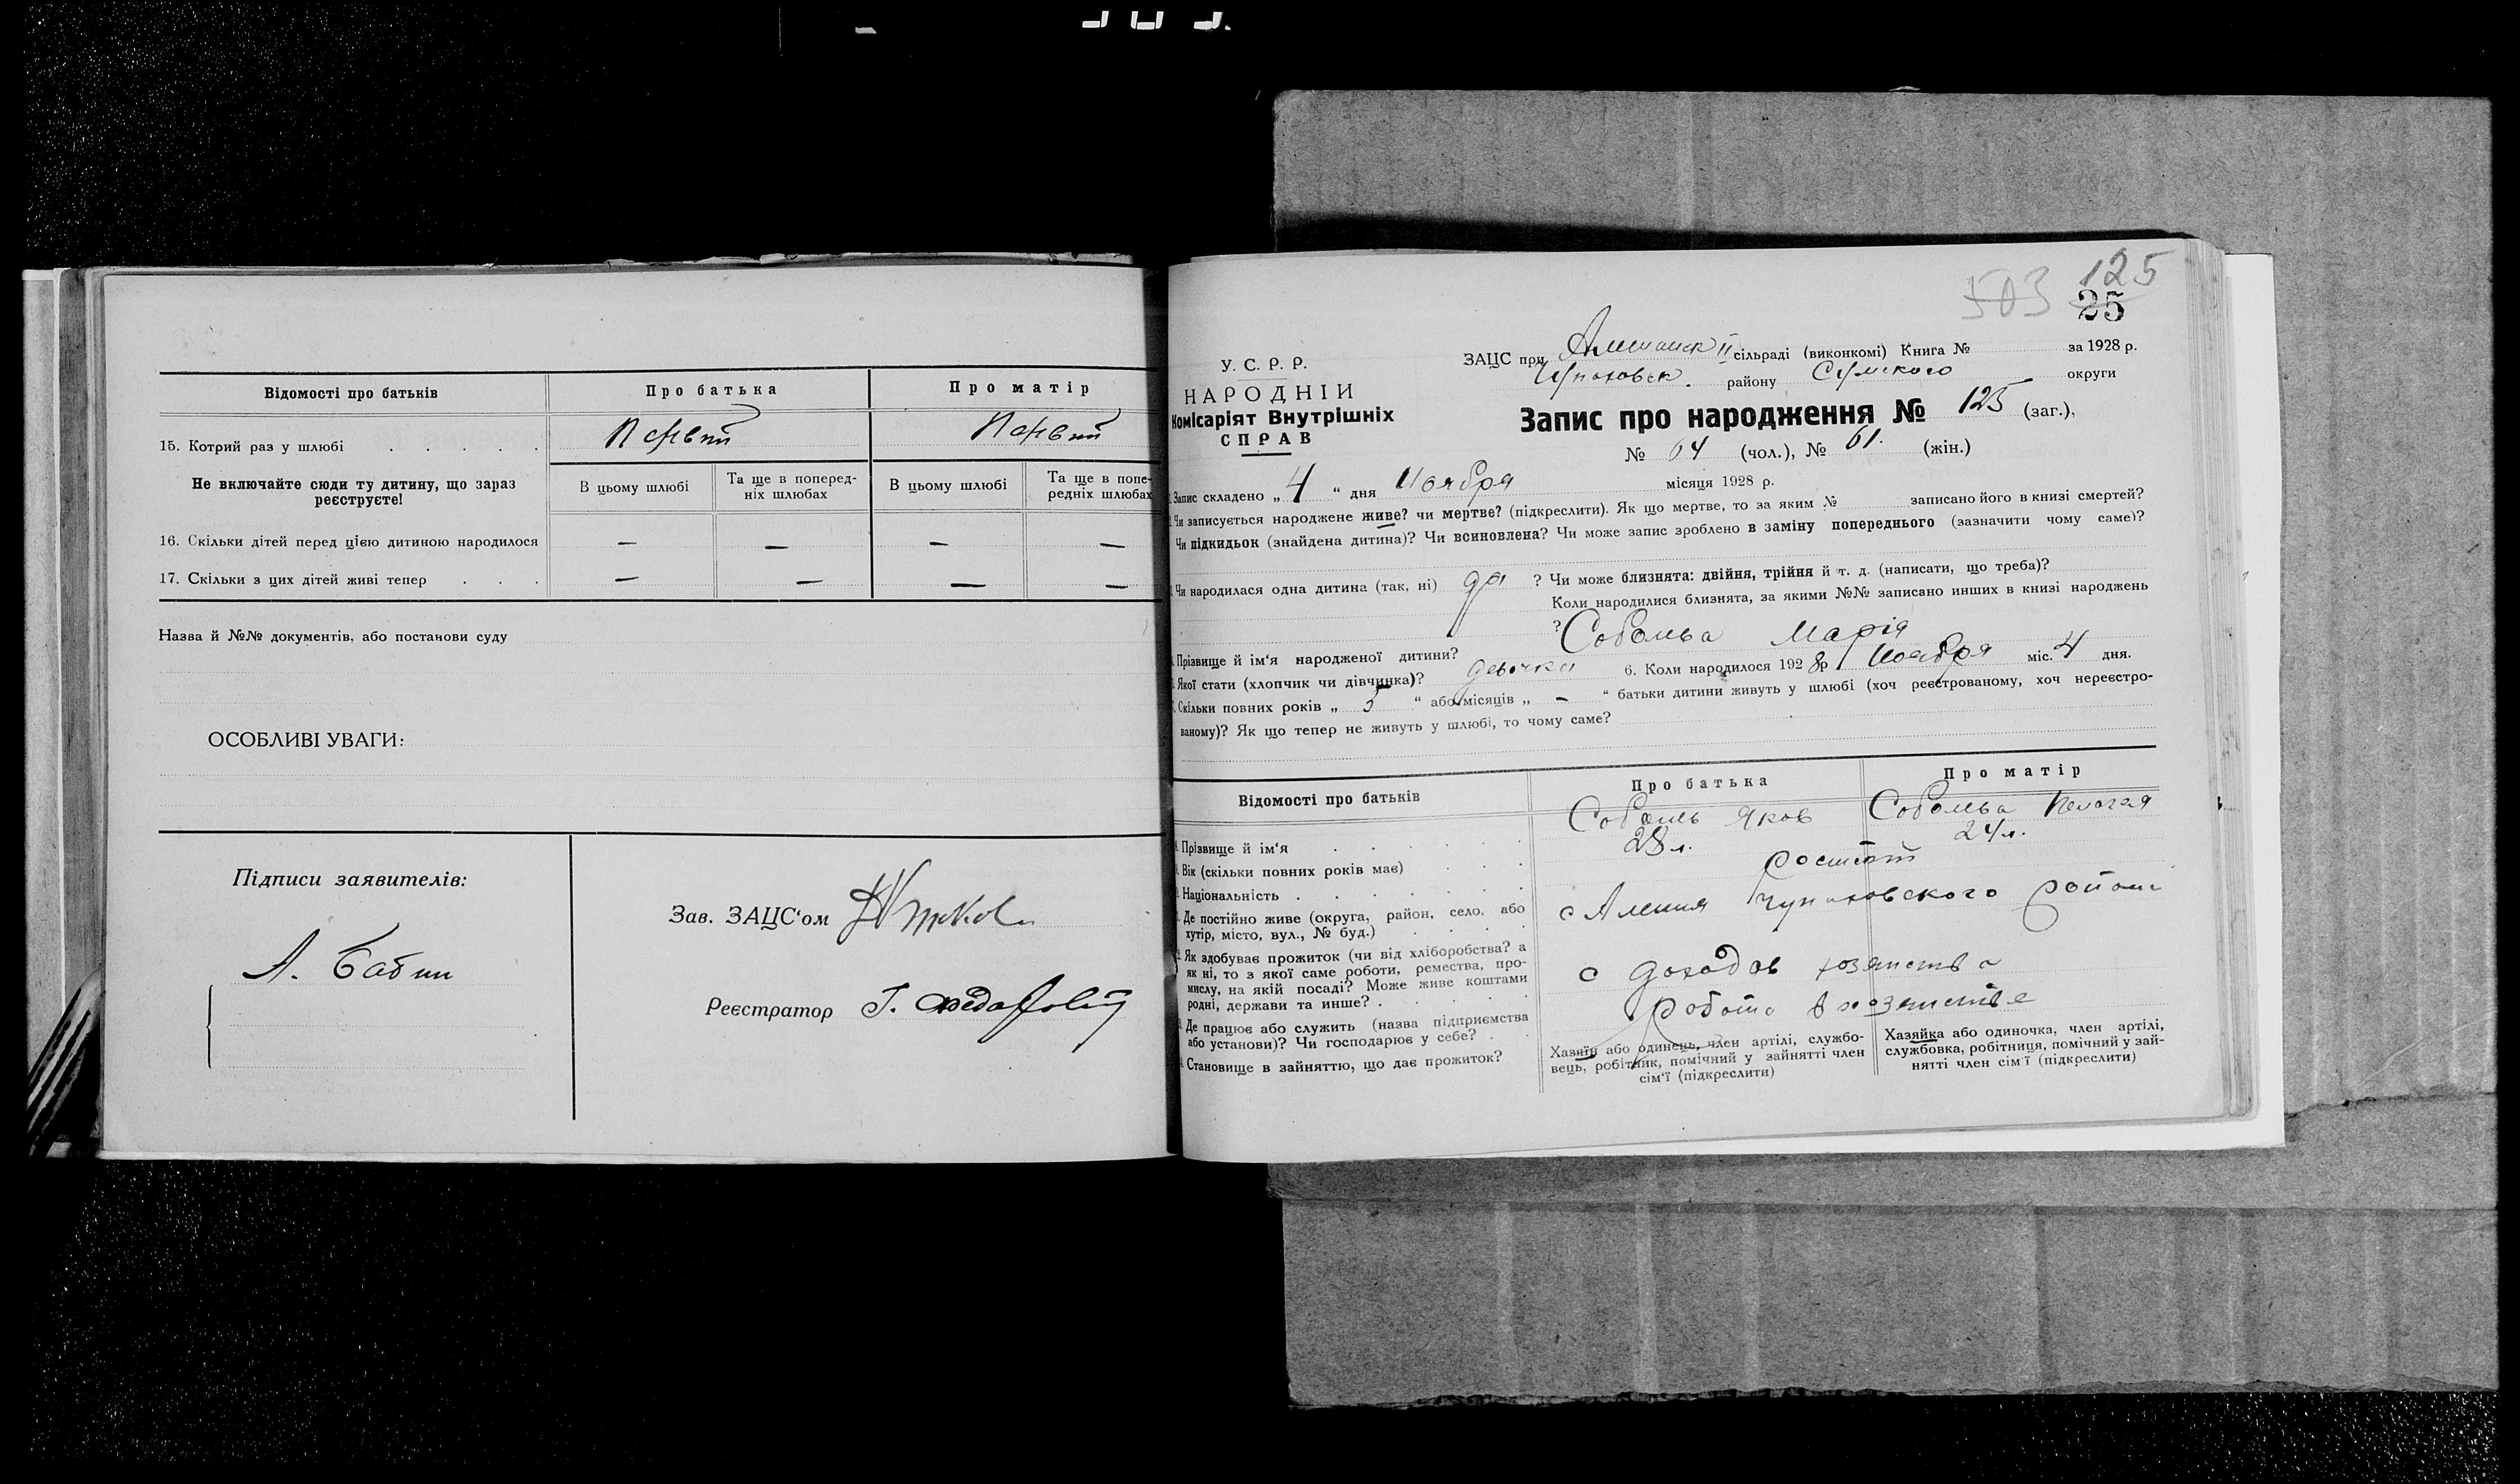 Відомості про батьків
Про батька
Про матір
15. Котрий раз у шлюбі
Первый
Первый
Не включайте сюди ту дитину, що зараз
реєструєте!
В цьому шлюбі
Та ще в поперед-
ніх шлюбах
В цьому шлюбі
Та ще в попе-
редніх шлюбах
16. Скільки дітей перед цією дитиною народилося — — — —
17. Скільки з цих дітей живі тепер — — — —
Назва й №№ документів, або постанови суду
ОСОБЛИВІ УВАГИ:
Підписи заявителів:
А. Бабин
Зав. ЗАЦС'ом
Реєстратор Г.
503 125
25
У. С. Р. Р.
НАРОДНІЙ
Комісаріят Внутрішніх
СПРАВ
ЗАЦС при II сільраді (виконкомі) Книга № за 1928 р.
Чупаховск. району Сумского округи
Запис про народження № 125 (заг.),
№ 64 (чол.), № 61. (жін.)
Запис складено „ 4 “ дня Ноября місяця 1928 р.
Чи записується народжене живе? чи мертве? (підкреслити). Як що мертве, то за яким № записано його в книзі смертей?
Чи підкидьок (знайдена дитина)? Чи всиновлена? Чи може запис зроблено в заміну попереднього (зазначити чому саме)?
Чи народилася одна дитина (так, ні) да ? Чи може близнята: двійня, трійня й т. д. (написати, що треба)?
Коли народилися близнята, за якими №№ записано инших в книзі народжень
?
Прізвище й ім'я народженої дитини? Собольва Марія
Якої стати (хлопчик чи дівчинка)? девочка 6. Коли народилося 1928р Ноября міс. 4 дня.
Скільки повних років „ 5 “ або місяців „ — “ батьки дитини живуть у шлюбі (хоч реєстрованому, хоч нереєстро-
ваному)? Як що тепер не живуть у шлюбі, то чому саме?
Відомості про батьків
Про батька
Про матір
Прізвище й ім'я
Соболь Яков
Собольва Пелагея
Вік (скільки повних років має)
28 л.
24 л.
Національність
Де постійно живе (округа, район, село, або
хутір, місто, вул., № буд.)
с Алешня Чупаховского района
Як здобуває прожиток (чи від хліборобства? а
як ні, то з якої саме роботи, ремества, про-
мислу, на якій посаді? Може живе коштами
родні, держави та инше?
с доходов хозяиства
Де працює або служить (назва підприємства
або установи)? Чи господарює у себе?
робота в хозяистве
Становище в зайняттю, що дає прожиток?
Хазяїн або одинець, член артілі, службо-
вець, робітник, помічний у зайнятті член
сім'ї (підкреслити)
Хазяйка або одиночка, член артілі,
службовка, робітниця, помічний у зай-
нятті член сім'ї (підкреслити)